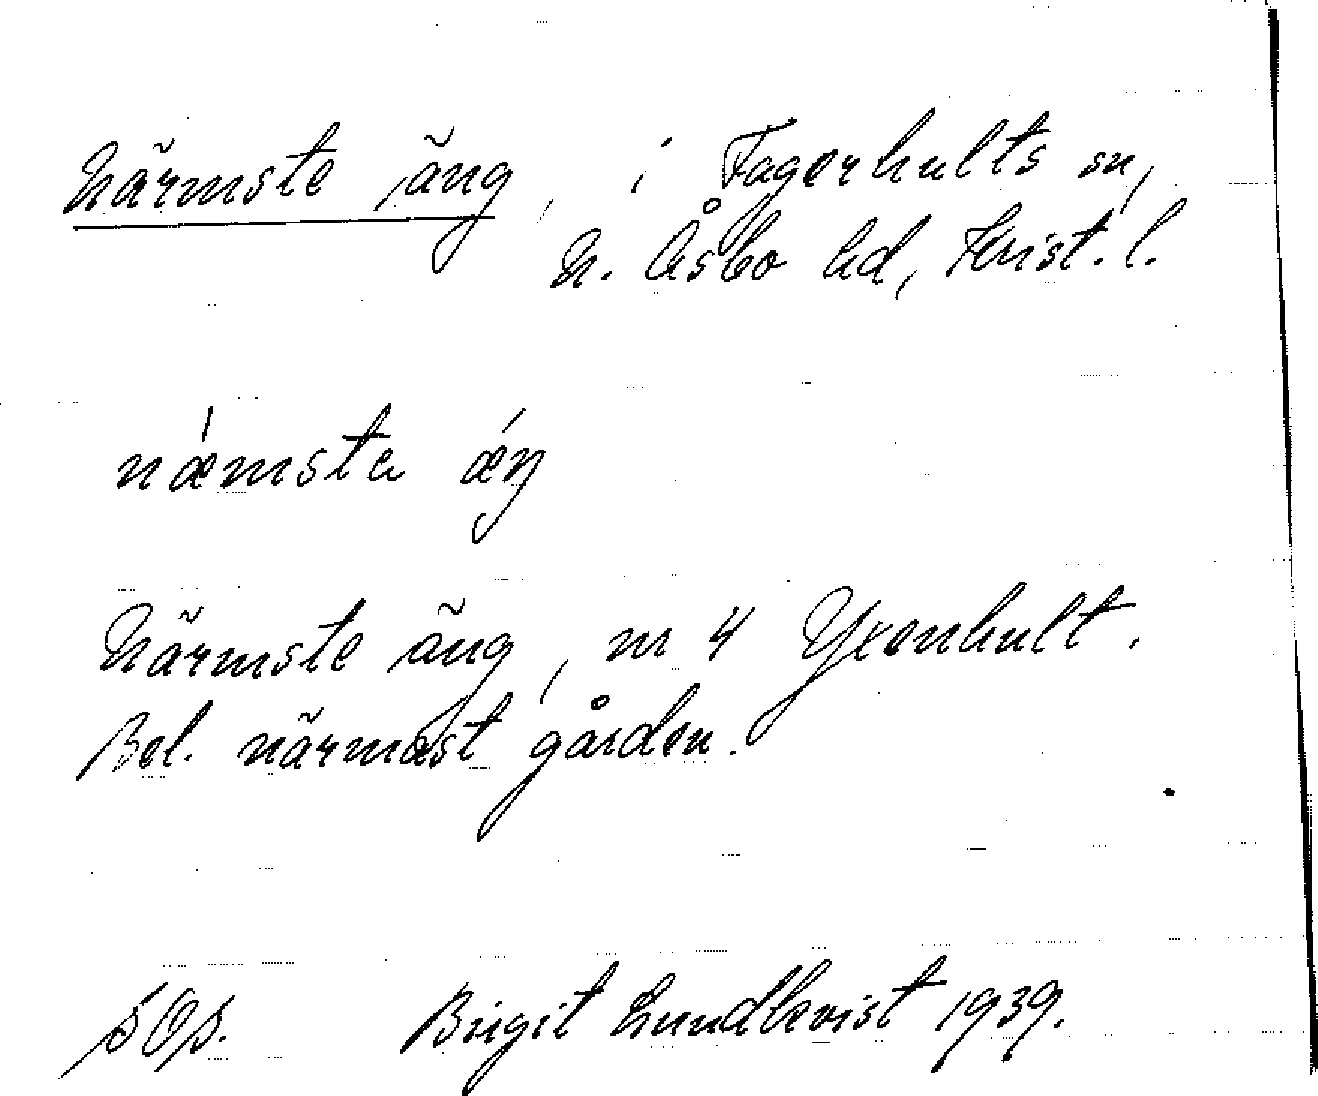 Närmste äng, i Fagerhults sn,
N. Åsbo hd, Krist. l.
næ̍msta æ̍ŋ
Närmste äng, nr 4 Yxenhult.
Bel. närmast gården.
Birgit Lundkvist 1939.